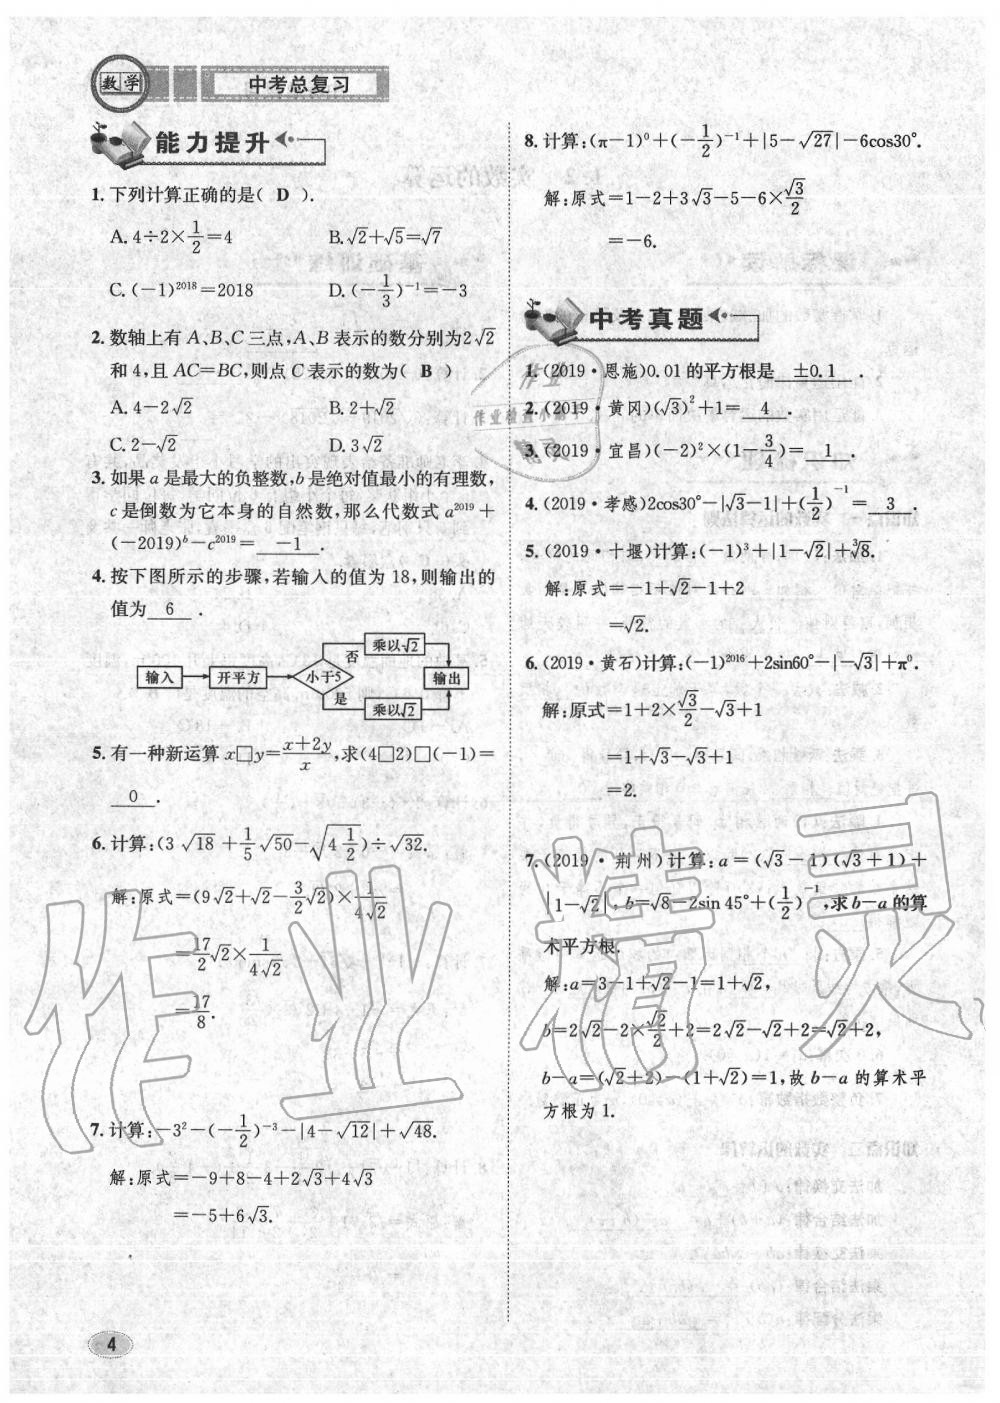 数学 中考总复习
能力提升
1. 下列计算正确的是( D ).
A. 4÷2×1/2=4 B. √2+√5=√7
C. (-1)²⁰¹⁸=2018 D. (-1/3)⁻¹=-3
2. 数轴上有 A、B、C 三点,A、B 表示的数分别为2√2
和 4,且 AC=BC,则点 C 表示的数为( B )
A. 4-2√2 B. 2+√2
C. 2-√2 D. 3√2
3. 如果 a 是最大的负整数,b 是绝对值最小的有理数,
c 是倒数为它本身的自然数,那么代数式 a²⁰¹⁹+
(-2019)ᵇ-c²⁰¹⁹= -1 .
4. 按下图所示的步骤,若输入的值为 18,则输出的
值为 6 .
输入 开平方 小于5 否 乘以√2 是 乘以√2 输出
5. 有一种新运算 x□y=(x+2y)/x,求(4□2)□(-1)=
0 .
6. 计算:(3√18+1/5√50-√(4 1/2))÷√32.
解:原式=(9√2+√2-3/2√2)×1/(4√2)
=17/2√2×1/(4√2)
=17/8.
7. 计算:-3²-(-1/2)⁻³-|4-√12|+√48.
解:原式=-9+8-4+2√3+4√3
=-5+6√3.
4
8. 计算:(π-1)⁰+(-1/2)⁻¹+|5-√27|-6cos30°.
解:原式=1-2+3√3-5-6×√3/2
=-6.
中考真题
1. (2019·恩施)0.01 的平方根是 ±0.1 .
2. (2019·黄冈)(√3)²+1= 4 .
3. (2019·宜昌)(-2)²×(1-3/4)= 1 .
4. (2019·孝感)2cos30°-|√3-1|+(1/2)⁻¹= 3 .
5. (2019·十堰)计算:(-1)³+|1-√2|+³√8.
解:原式=-1+√2-1+2
=√2.
6. (2019·黄石)计算:(-1)²⁰¹⁶+2sin60°-|-√3|+π⁰.
解:原式=1+2×√3/2-√3+1
=1+√3-√3+1
=2.
7. (2019·荆州)计算:a=(√3-1)(√3+1)+
|1-√2|,b=√8-2sin 45°+(1/2)⁻¹,求b-a 的算
术平方根.
解:a=3-1+√2-1=1+√2,
b=2√2-2×√2/2+2=2√2-√2+2=√2+2,
b-a=(√2+2)-(1+√2)=1,故 b-a 的算术平
方根为 1.
作业精灵
作业
作业检查小助手
精灵